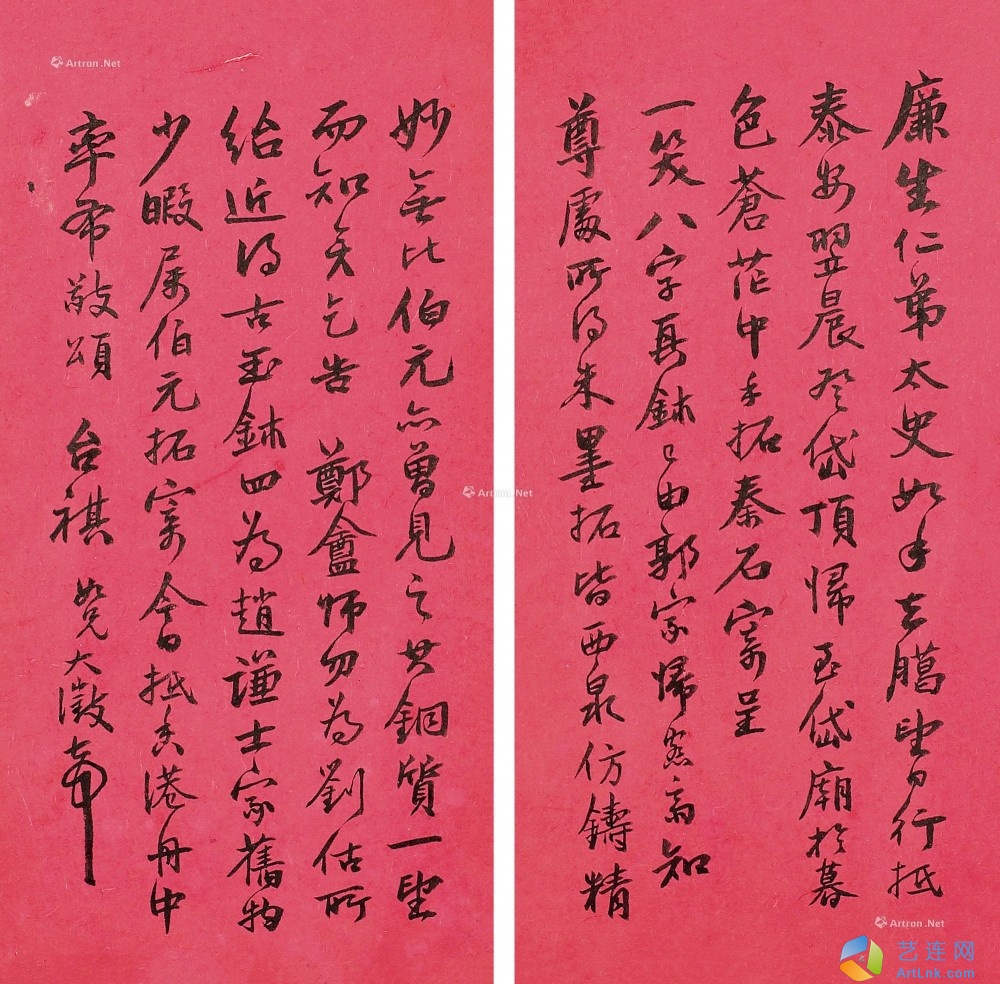 廉生仁弟太史如手去臘望日行抵
泰安翌晨登岱頂歸至岱廟於暮
色蒼茫中手拓秦石寄呈
一笑八字真鉥已由郭家歸愙齋知
尊處所得朱墨拓皆西泉仿鑄精
妙無比伯元亦曾見之其銅質一望
而知矣乞告 鄭盦師勿為劉估所
紿近得古玉鉥四為趙謙士家舊物
少暇属伯元拓寄今日抵香港舟中
率布敬頌 台祺 如兄大澂頓首
Artron.Net
Artron.Net
Artron.Net
艺连网
ArtLnk.com